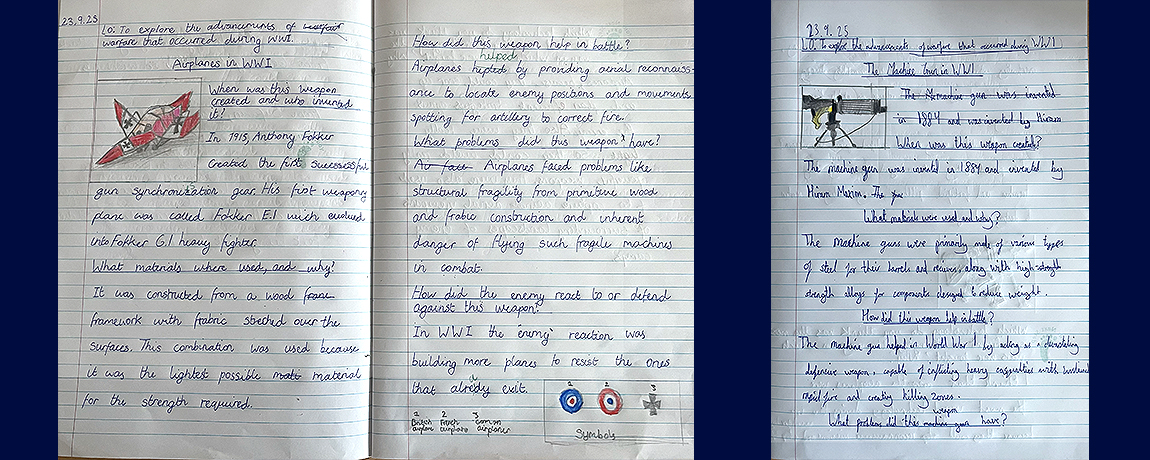 23.9.25
LO: To explore the advancements of warfar
warfare that occurred during WW1.
Airplanes in WWI
When was this weapon
created and who invented
it?
In 1915, Anthony Fokker
created the first successful
gun synchronization gear. His first weaponry
plane was called Fokker E.I which evolved
into Fokker G.I heavy fighter.
What materials where used, and why?
It was constructed from a wood frane
framework with frabric streched over the
surfaces. This combination was used because
it was the lightest possible matt material
for the strength required.
How did this weapon help in battle?
helped
Airplanes hepted by providing aerial reconnaiss-
ance to locate enemy positions and movements
spotting for artillery to correct fire.
What problems did this weapon have?
Airplanes faced problems like
structural fragility from primitive wood
and frabic construction and inherent
danger of flying such fragile machines
in combat.
How did the enemy react to or defend
against this weapon?
In WWI the enemy reaction was
building more planes to resist the ones
that already exit.
1 2 3
1 2 3
British French German
airplane airplane airplanes
Symbols
23.9.25
L.O: To explore the advancements of warfare that occurred during WW1
The Machine Gun in WW1
The machine gun was invented
in 1884 and was invented by Hiram
When was this weapon created?
The machine gun was invented in 1884 and invented by
Hiram Maxim. The
What materials were used and why?
The machine guns were primarily made of various types
of steel for their barrels and recivers, along with high-strength
strength alloys for components designed to reduce weight.
How did this weapon help in battle?
The machine gun helped in World War 1 by acting as a devastating
defensive weapon, capable of inflicting heavy casualties with
rapid fire and creating killing zones.
weapon
What problems did this machine gun have?